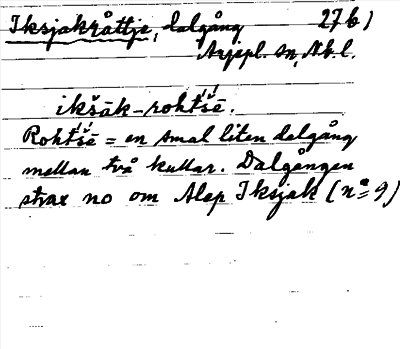 Iksjakråttje, dalgång 27b)
Arjepl. sn, Nb. l.
ikšāk-rohtšē.
Rohtšē = en smal liten dalgång
mellan två kullar. Dalgången
strax no om Alep Iksjak (nº 9)